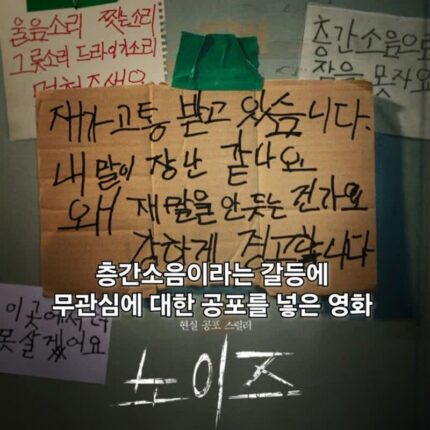 울음소리 찢는소리
그릇소리 드라이기소리
멈춰주세요
층간소음으로
잠을 못자요
재가 고통 받고 있습니다.
내 말이 장난 같나요
왜 재 말을 안듣는 건가요
강하게 경고합니다
층간소음이라는 갈등에
무관심에 대한 공포를 넣은 영화
이곳에서 더
못살겠어요
현실 공포 스릴러
노이즈